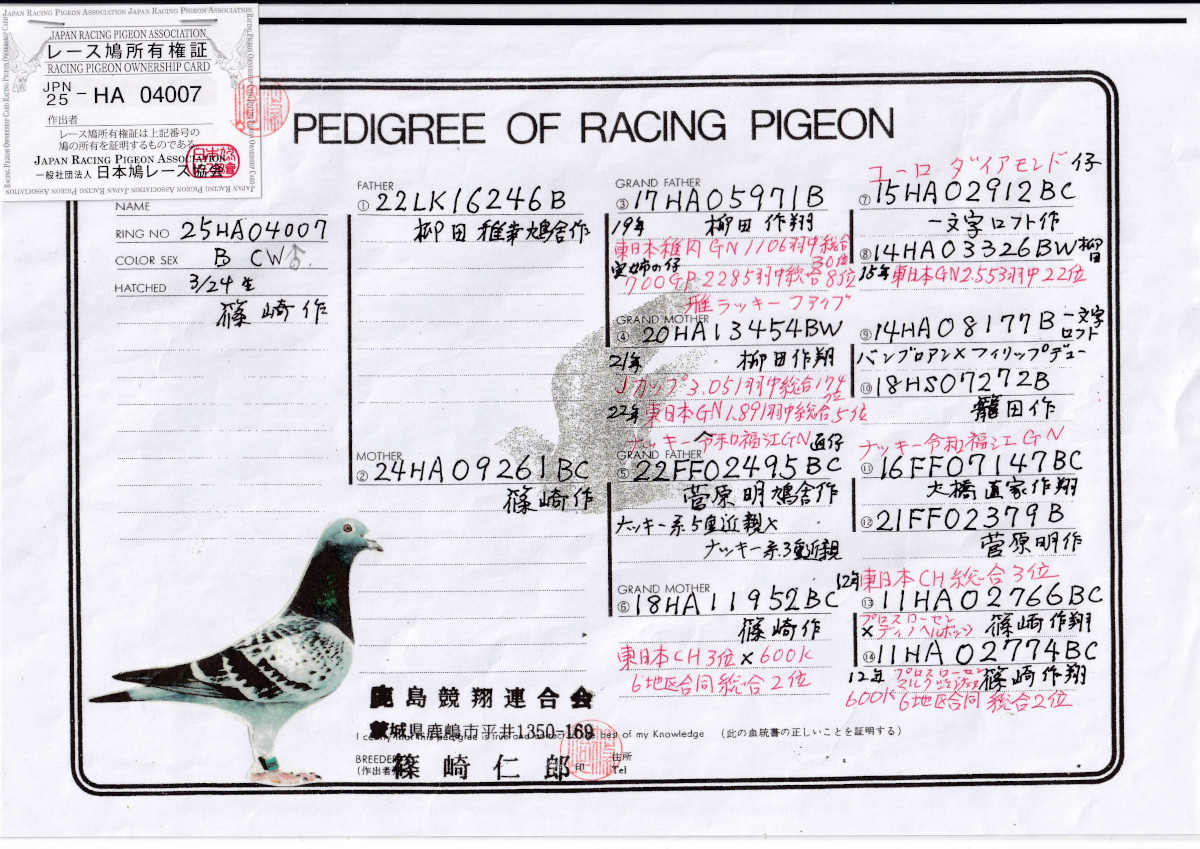 JAPAN RACING PIGEON ASSOCIATION JAPAN RACING PIGEON ASSOCIATION
JAPAN RACING PIGEON ASSOCIATION
レース鳩所有権証
RACING PIGEON OWNERSHIP CARD
JPN
25 - HA 04007
作出者
レース鳩所有権証は上記番号の
鳩の所有を証明するものである
JAPAN RACING PIGEON ASSOCIATION
一般社団法人 日本鳩レース協会
PEDIGREE OF RACING PIGEON
NAME
RING NO 25HA04007
COLOR SEX B CW ♂
HATCHED 3/24生
篠崎作
FATHER
① 22LK16246B
柳田稚幸鳩舎作
MOTHER
② 24HA09261BC
篠崎作
GRAND FATHER
③ 17HA05971B
19年 柳田作翔
東日本稚内GN1106羽中総合
30位
実姉の仔
700GP-2285羽中総合8位
雅ラッキーファイブ
GRAND MOTHER
④ 20HA13454BW
21年 柳田作翔
Jカップ3.051羽中総合174
位
22年東日本GN1.891羽中総合5位
ナッキー令和福江GN直仔
GRAND FATHER
⑤ 22FF02495BC
菅原明鳩舎作
ナッキー系5重近親×
ナッキー系3重近親
GRAND MOTHER
⑥ 18HA11952BC
篠崎作
東日本CH3位×600K
6地区合同総合2位
ユーロダイアモンド仔
⑦ 15HA02912BC
一文字ロフト作
⑧ 14HA03326BW 柳田
15年東日本GN2.553羽中22位
⑨ 14HA08177B 一文字
ロフト
バンブロアン×フィリップデュー
⑩ 18HS07272B
籠田作
ナッキー令和福江GN
⑪ 16FF07147BC
大橋直家作翔
⑫ 21FF02379B
菅原明作
12年東日本CH総合3位
⑬ 11HA02766BC
プロスローセン
×ディノヘルボッツ 篠崎作翔
⑭ 11HA02774BC
12年 プロスローセン
篠崎作翔
600K 6地区合同総合2位
鹿島競翔連合会
茨城県鹿嶋市平井1350-169
best of my Knowledge (此の血統書の正しいことを証明する)
BREEDER
(作出者) 篠崎仁郎 印
住所
Tel